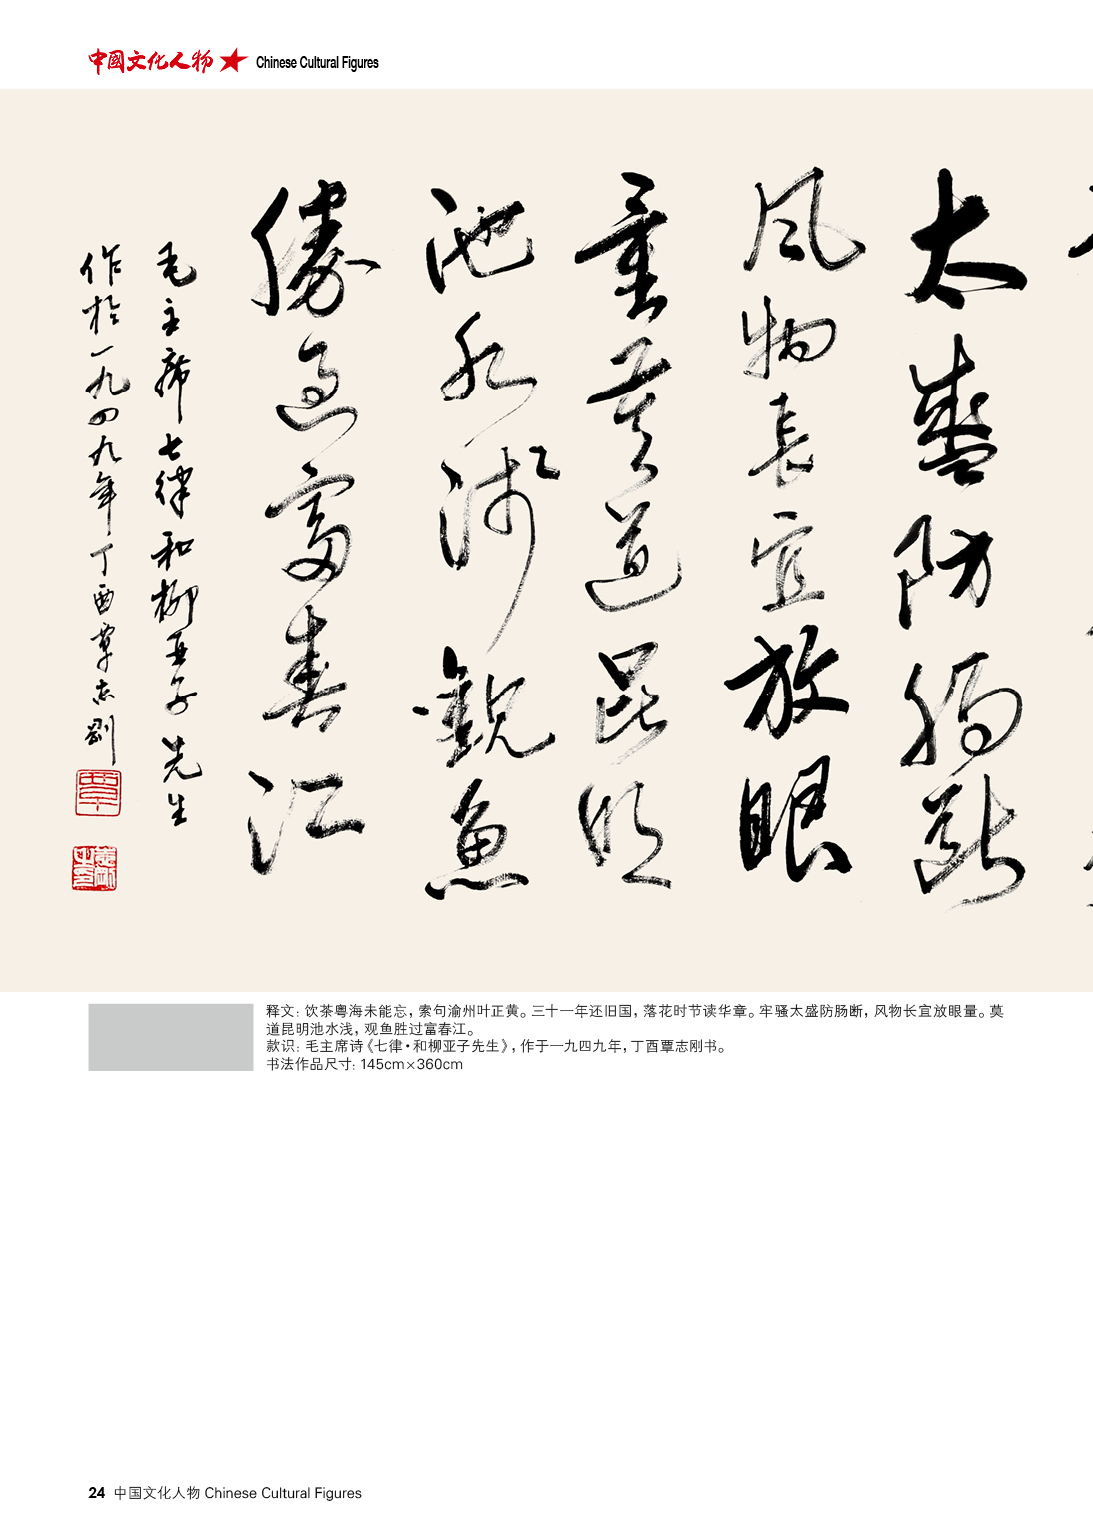 中國文化人物 Chinese Cultural Figures
太盛防腸斷
風物長宜放眼
量莫道昆明
池水淺觀魚
勝過富春江
毛主席七律和柳亚子先生
作於一九四九年丁酉覃志剛
释文: 饮茶粤海未能忘, 索句渝州叶正黄。三十一年还旧国, 落花时节读华章。牢骚太盛防肠断, 风物长宜放眼量。莫
道昆明池水浅, 观鱼胜过富春江。
款识: 毛主席诗《七律·和柳亚子先生》, 作于一九四九年, 丁酉覃志刚书。
书法作品尺寸: 145cm×360cm
24 中国文化人物 Chinese Cultural Figures